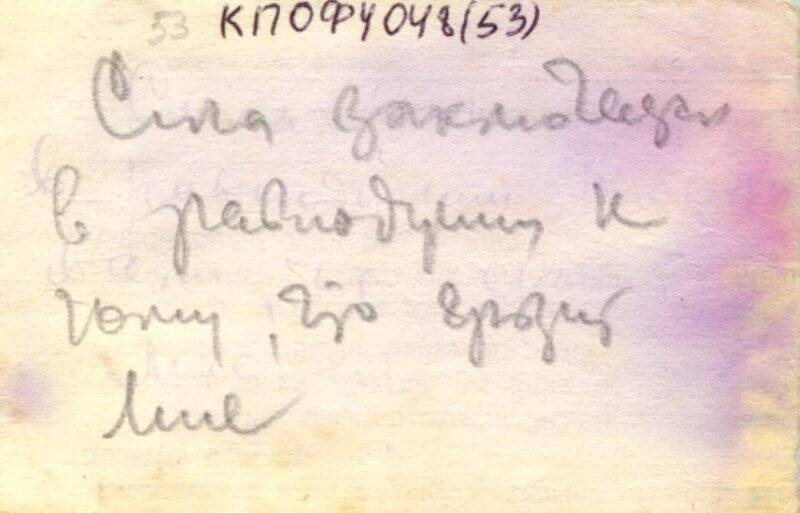 53 КПОФ4048(53)
Сила заключается
в равнодушии к
тому, что грозит
мне